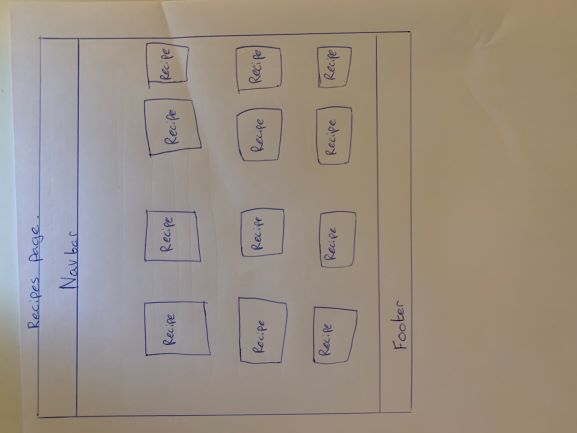 Recipes page.
Navbar
Recipe Recipe Recipe Recipe
Recipe Recipe Recipe Recipe
Recipe Recipe Recipe Recipe
Footer